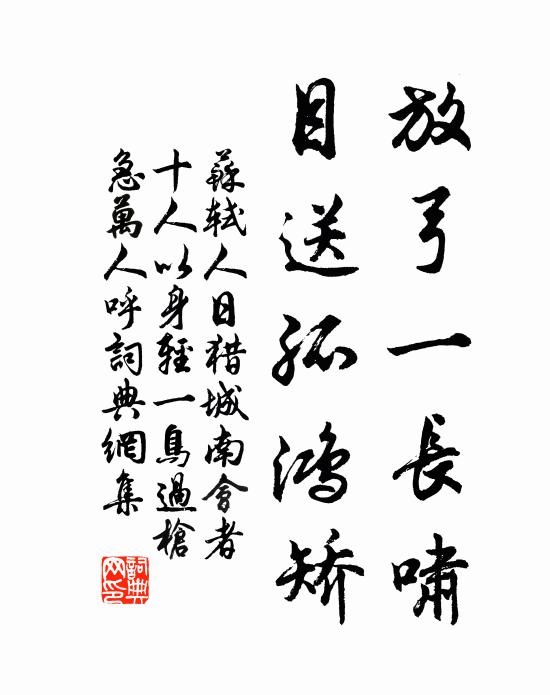 放弓一長嘯
目送孤鴻矯
蘇軾人日猎城南會者
十人以身輕一鳥過槍
急萬人呼詞典網集
詞典
网印